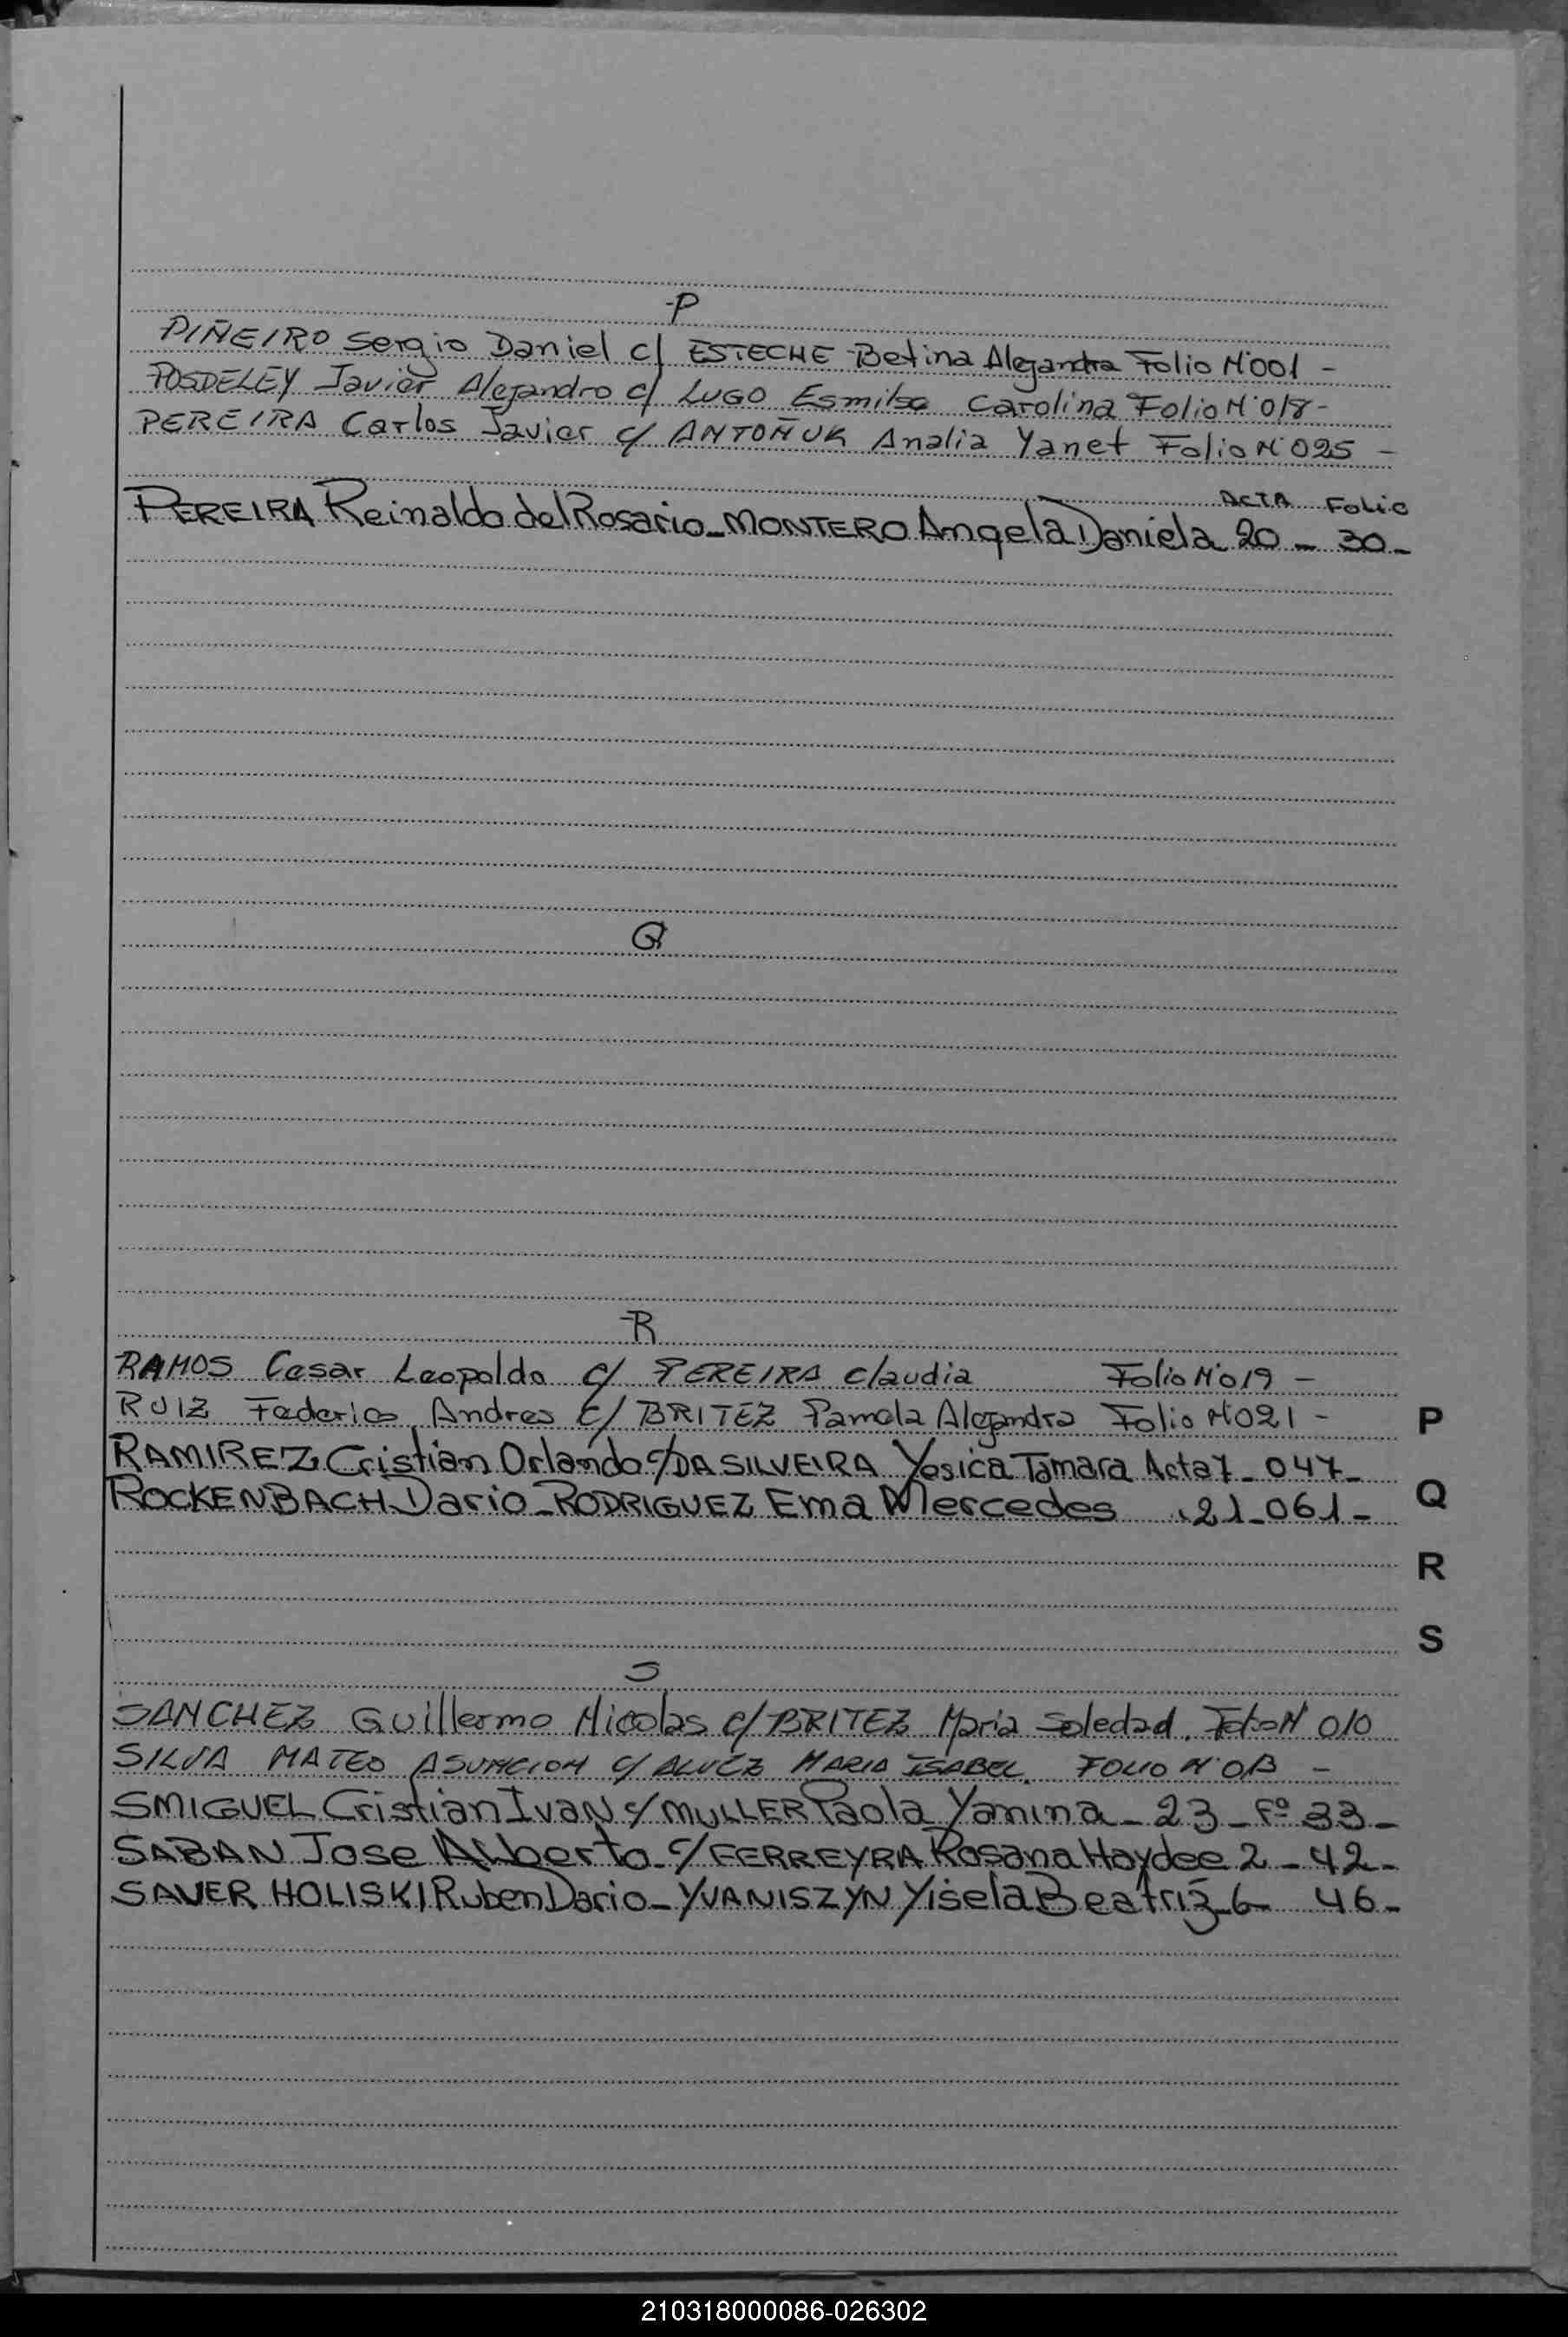 P
PIÑEIRO Sergio Daniel c/ ESTECHE Betina Alejandra Folio Nº001 -
POSDELEY Javier Alejandro c/ LUGO Esmilse Carolina Folio Nº018-
PEREIRA Carlos Javier c/ ANTOÑUK Analia Yanet Folio Nº025 -
ACTA Folio
PEREIRA Reinaldo del Rosario - MONTERO Angela Daniela 20 - 30 -
Q
R
RAMOS Cesar Leopoldo c/ PEREIRA Claudia Folio Nº019 -
RUIZ Federico Andres c/ BRITEZ Pamela Alejandra Folio Nº021 -
RAMIREZ, Cristian Orlando c/ DA SILVEIRA Yesica Tamara Acta 7 - 047 -
ROCKENBACH Dario - RODRIGUEZ Ema Mercedes 21 - 061 -
P
Q
R
S
S
SANCHEZ Guillermo Nicolas c/ BRITEZ Maria Soledad. Folio Nº 010
SILVA MATEO ASUNCION c/ ALVEZ MARIA ISABEL. FOLIO Nº -
SMIGUEL Cristian Ivan c/ MULLER Paola Yanina - 23 - Fº 33 -
SABAN Jose Alberto - c/ FERREYRA Rosana Haydee 2 - 42 -
SAUER HOLISKI Ruben Dario - YVANISZYN Yisela Beatriz - 6 - 46 -
210318000086-026302